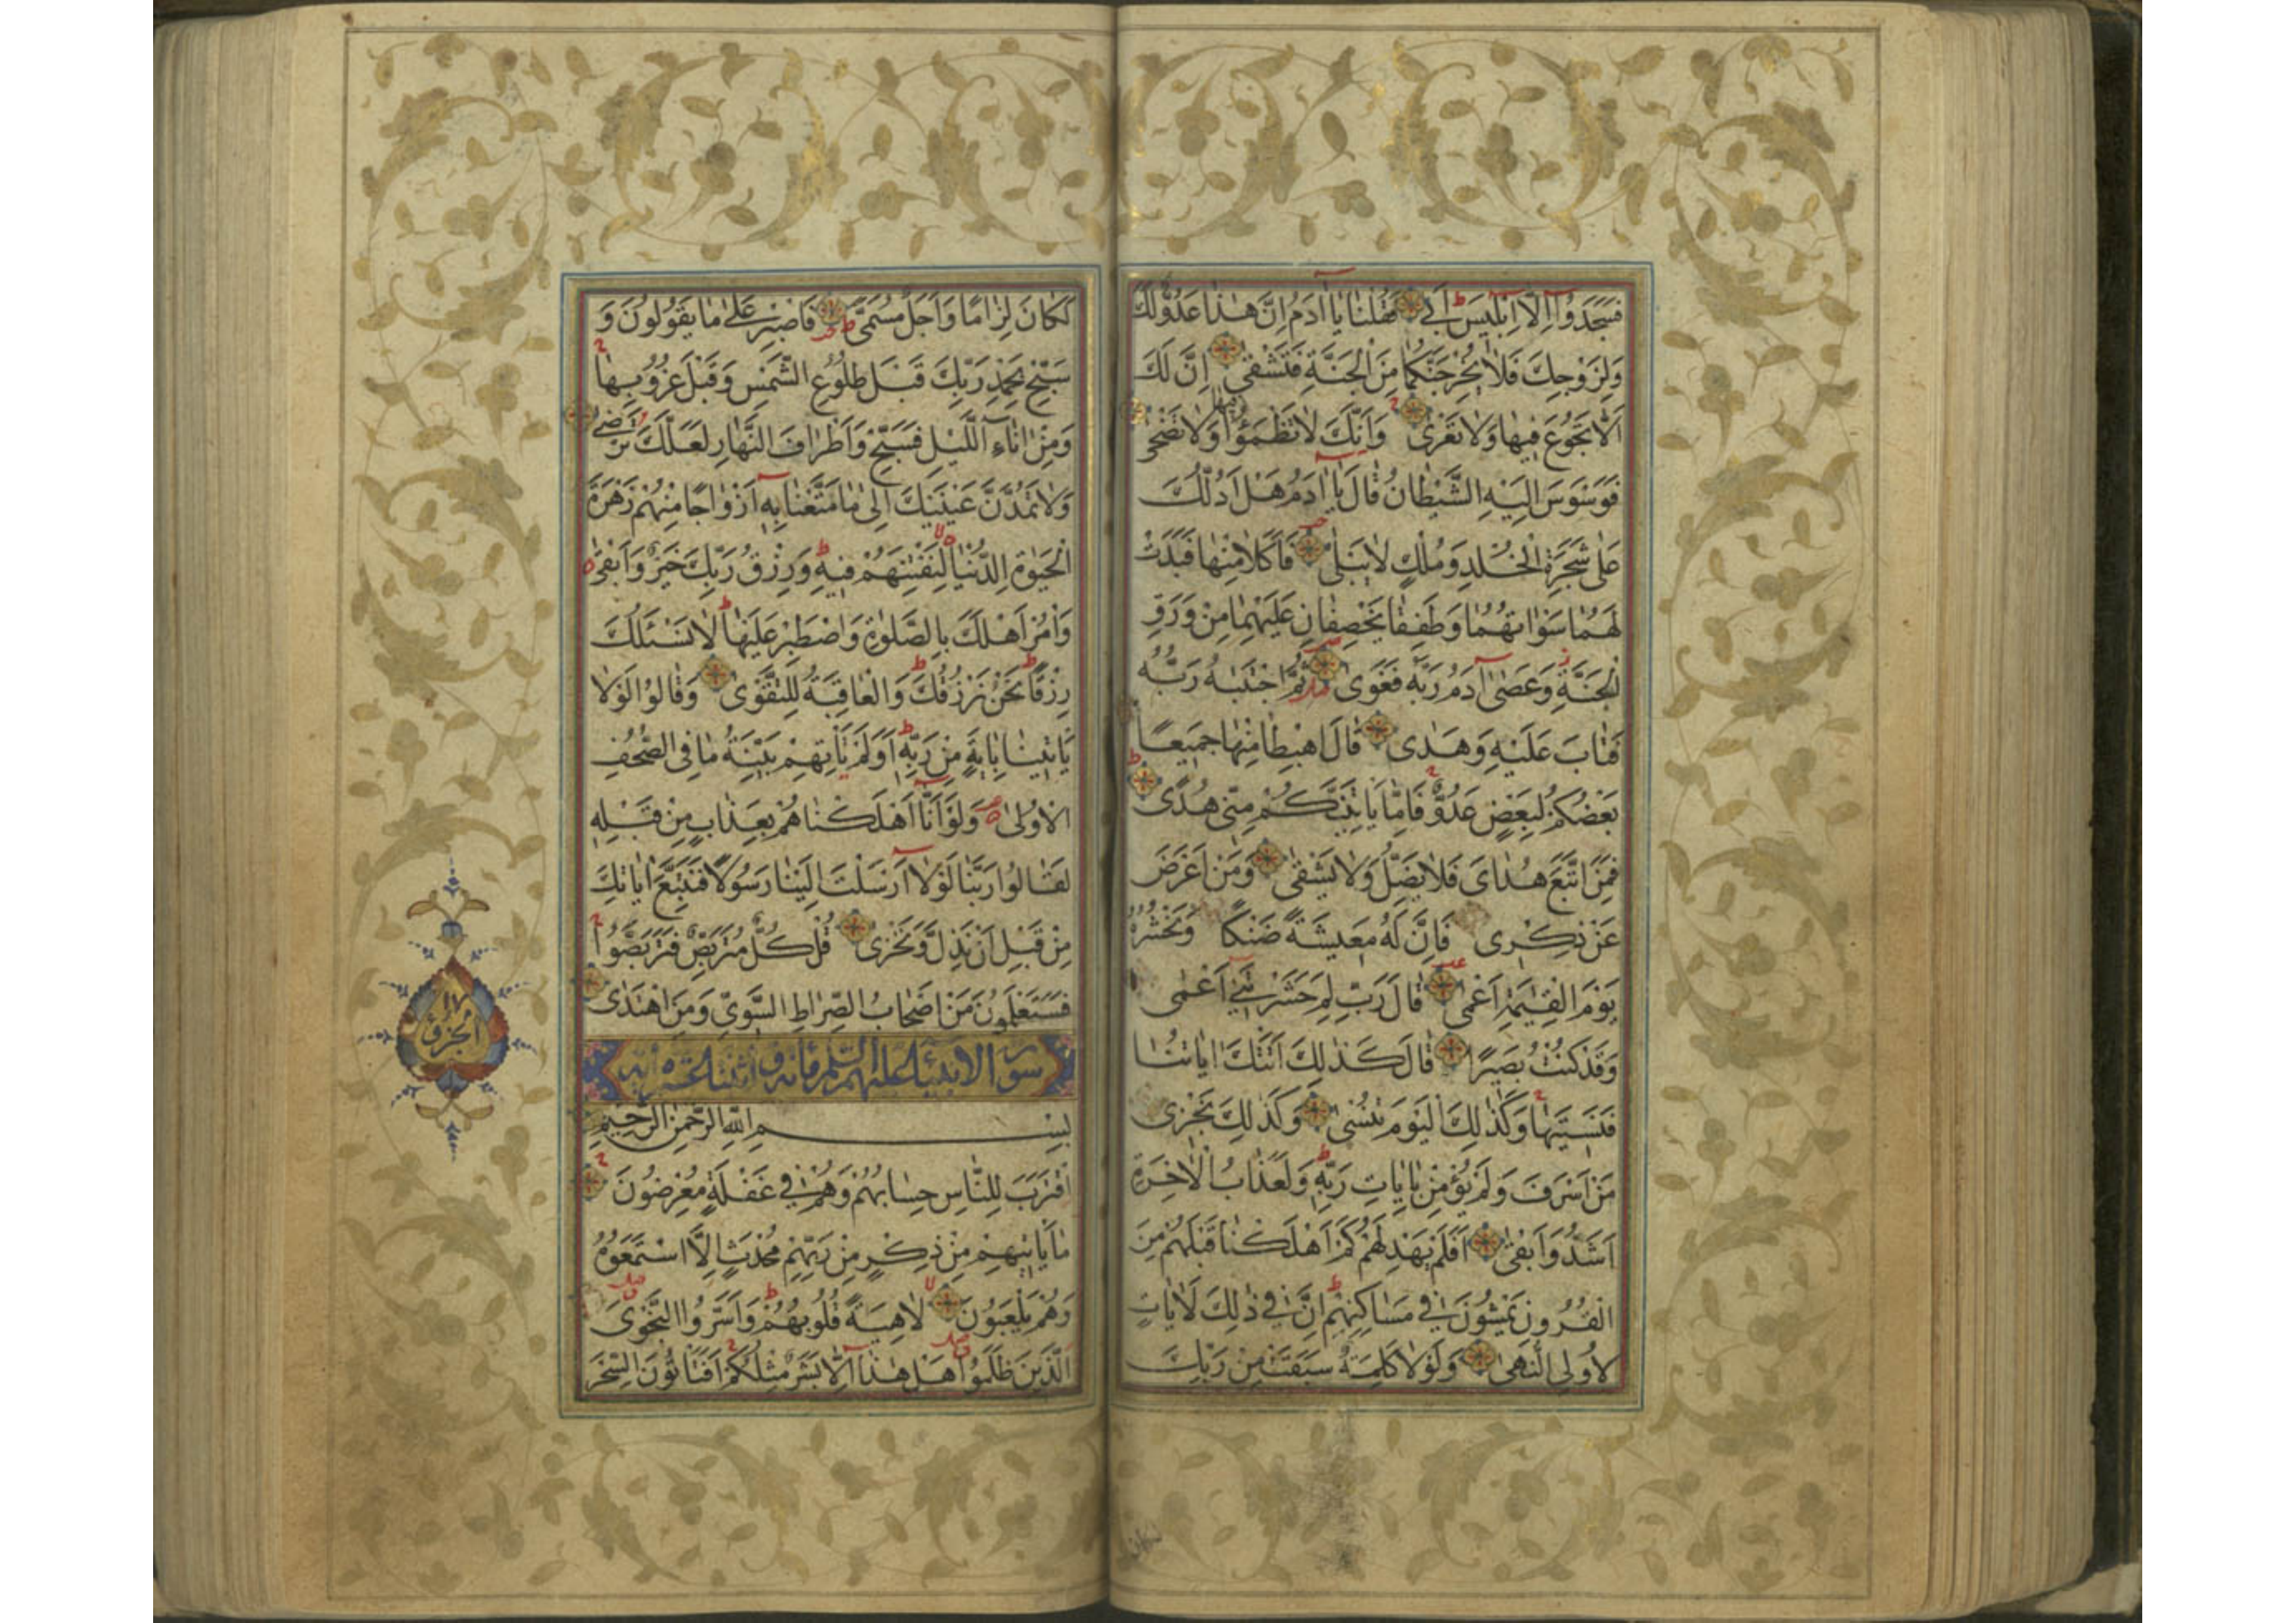 فَسَجَدُوا اِلَّا اِبْلِيسَ اَبٰى فَقُلْنَا يَا اٰدَمُ اِنَّ هٰذَا عَدُوٌّ لَكَ
وَلِزَوْجِكَ فَلَا يُخْرِجَنَّكُمَا مِنَ الْجَنَّةِ فَتَشْقٰى اِنَّ لَكَ
اَلَّا تَجُوعَ فِيهَا وَلَا تَعْرٰى وَاَنَّكَ لَا تَظْمَؤُا فِيهَا وَلَا تَضْحٰى
فَوَسْوَسَ اِلَيْهِ الشَّيْطَانُ قَالَ يَا اٰدَمُ هَلْ اَدُلُّكَ
عَلٰى شَجَرَةِ الْخُلْدِ وَمُلْكٍ لَا يَبْلٰى فَاَكَلَا مِنْهَا فَبَدَتْ
لَهُمَا سَوْاٰتُهُمَا وَطَفِقَا يَخْصِفَانِ عَلَيْهِمَا مِنْ وَرَقِ
الْجَنَّةِ وَعَصٰى اٰدَمُ رَبَّهُ فَغَوٰى ثُمَّ اجْتَبٰيهُ رَبُّهُ
فَتَابَ عَلَيْهِ وَهَدٰى قَالَ اهْبِطَا مِنْهَا جَمِيعًا
بَعْضُكُمْ لِبَعْضٍ عَدُوٌّ فَاِمَّا يَاْتِيَنَّكُمْ مِنِّى هُدًى
فَمَنِ اتَّبَعَ هُدَاىَ فَلَا يَضِلُّ وَلَا يَشْقٰى وَمَنْ اَعْرَضَ
عَنْ ذِكْرِى فَاِنَّ لَهُ مَعِيشَةً ضَنْكًا وَنَحْشُرُهُ
يَوْمَ الْقِيٰمَةِ اَعْمٰى قَالَ رَبِّ لِمَ حَشَرْتَنِى اَعْمٰى
وَقَدْ كُنْتُ بَصِيرًا قَالَ كَذٰلِكَ اَتَتْكَ اٰيَاتُنَا
فَنَسِيتَهَا وَكَذٰلِكَ الْيَوْمَ تُنْسٰى وَكَذٰلِكَ نَجْزِى
مَنْ اَسْرَفَ وَلَمْ يُؤْمِنْ بِاٰيَاتِ رَبِّهِ وَلَعَذَابُ الْاٰخِرَةِ
اَشَدُّ وَاَبْقٰى اَفَلَمْ يَهْدِ لَهُمْ كَمْ اَهْلَكْنَا قَبْلَهُمْ مِنَ
الْقُرُونِ يَمْشُونَ فِى مَسَاكِنِهِمْ اِنَّ فِى ذٰلِكَ لَاٰيَاتٍ
لِاُولِى النُّهٰى وَلَوْلَا كَلِمَةٌ سَبَقَتْ مِنْ رَبِّكَ
لَكَانَ لِزَامًا وَاَجَلٌ مُسَمًّى فَاصْبِرْ عَلٰى مَا يَقُولُونَ وَ
سَبِّحْ بِحَمْدِ رَبِّكَ قَبْلَ طُلُوعِ الشَّمْسِ وَقَبْلَ غُرُوبِهَا
وَمِنْ اٰنَاءِ الَّيْلِ فَسَبِّحْ وَاَطْرَافَ النَّهَارِ لَعَلَّكَ تَرْضٰى
وَلَا تَمُدَّنَّ عَيْنَيْكَ اِلٰى مَا مَتَّعْنَا بِهِ اَزْوَاجًا مِنْهُمْ زَهْرَةَ
الْحَيٰوةِ الدُّنْيَا لِنَفْتِنَهُمْ فِيهِ وَرِزْقُ رَبِّكَ خَيْرٌ وَاَبْقٰى
وَاْمُرْ اَهْلَكَ بِالصَّلٰوةِ وَاصْطَبِرْ عَلَيْهَا لَا نَسْئَلُكَ
رِزْقًا نَحْنُ نَرْزُقُكَ وَالْعَاقِبَةُ لِلتَّقْوٰى وَقَالُوا لَوْلَا
يَاْتِينَا بِاٰيَةٍ مِنْ رَبِّهِ اَوَلَمْ تَاْتِهِمْ بَيِّنَةُ مَا فِى الصُّحُفِ
الْاُولٰى وَلَوْ اَنَّا اَهْلَكْنَاهُمْ بِعَذَابٍ مِنْ قَبْلِهِ
لَقَالُوا رَبَّنَا لَوْلَا اَرْسَلْتَ اِلَيْنَا رَسُولًا فَنَتَّبِعَ اٰيَاتِكَ
مِنْ قَبْلِ اَنْ نَذِلَّ وَنَخْزٰى قُلْ كُلٌّ مُتَرَبِّصٌ فَتَرَبَّصُوا
فَسَتَعْلَمُونَ مَنْ اَصْحَابُ الصِّرَاطِ السَّوِىِّ وَمَنِ اهْتَدٰى
سورة الانبياء عليهم السلم مائة و اثنتا عشرة اية
بِسْمِ اللّٰهِ الرَّحْمٰنِ الرَّحِيمِ
اِقْتَرَبَ لِلنَّاسِ حِسَابُهُمْ وَهُمْ فِى غَفْلَةٍ مُعْرِضُونَ
مَا يَاْتِيهِمْ مِنْ ذِكْرٍ مِنْ رَبِّهِمْ مُحْدَثٍ اِلَّا اسْتَمَعُوهُ
وَهُمْ يَلْعَبُونَ لَاهِيَةً قُلُوبُهُمْ وَاَسَرُّوا النَّجْوَى
الَّذِينَ ظَلَمُوا هَلْ هٰذَا اِلَّا بَشَرٌ مِثْلُكُمْ اَفَتَاْتُونَ السِّحْرَ
الجزؤ ١٧